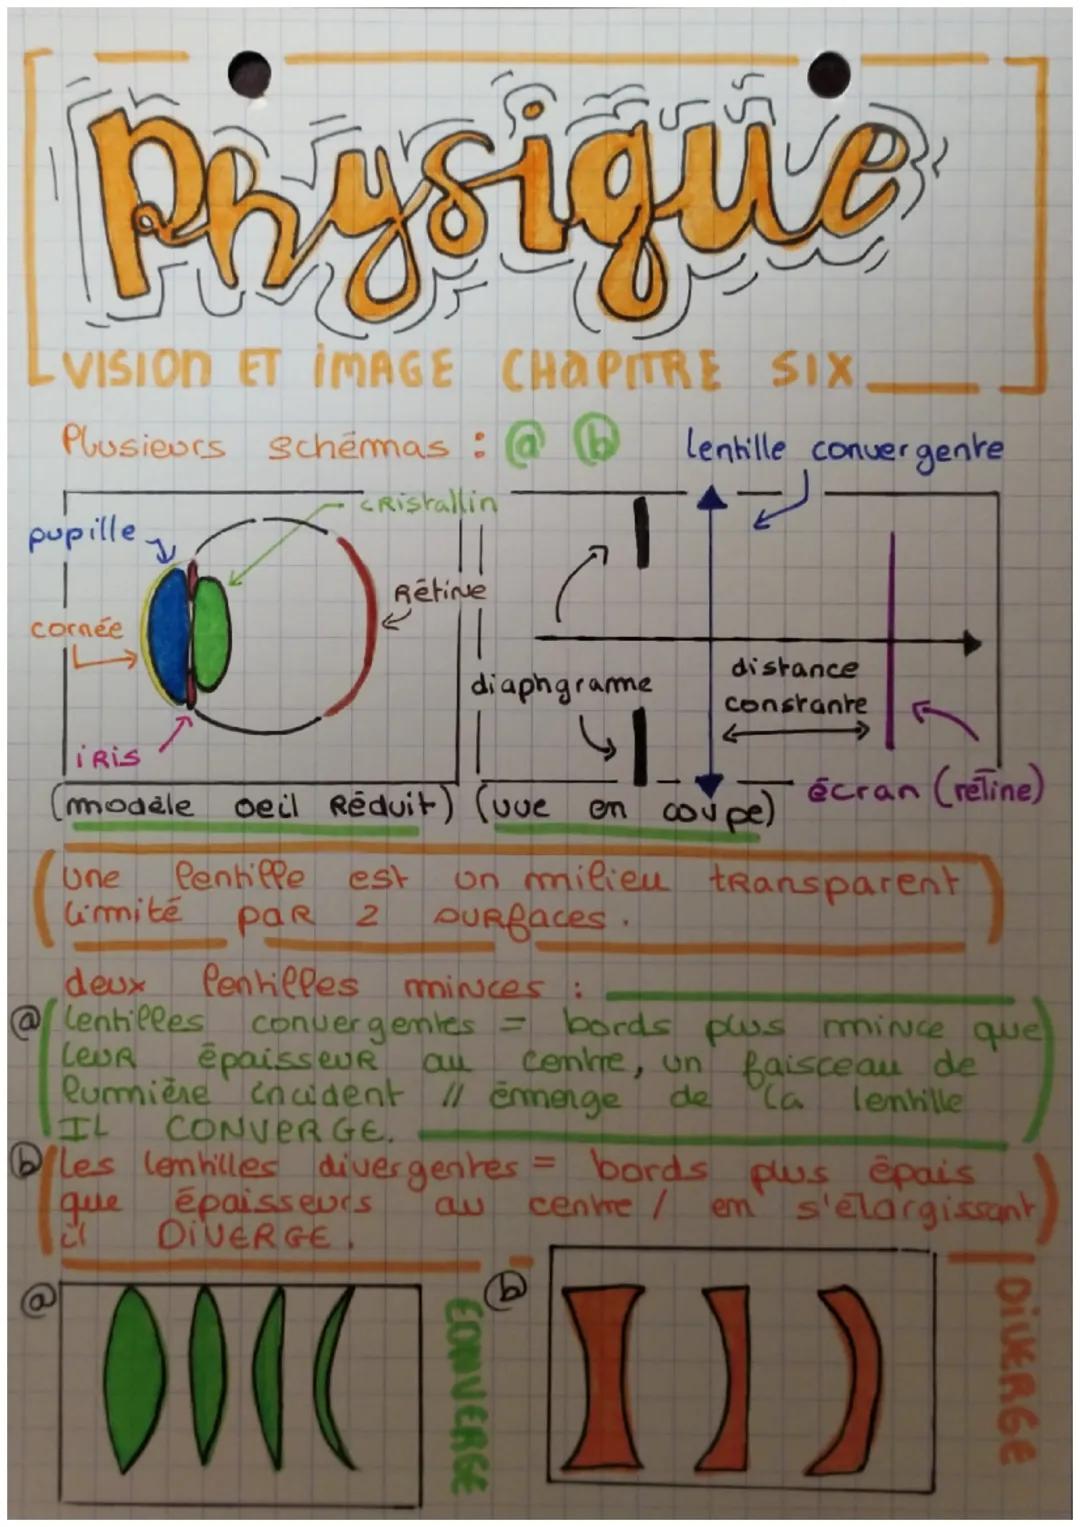 Physique
VISION ET IMAGE CHAPITRE SIX
Plusieurs schémas : @ b
lentille convergente
cristallin
pupille
Rétine
cornée
iRis
diaphgramme
distance
constante
écran (rétine)
(modèle oeil Réduit) (vue en coupe)
une lentille est un milieu transparent
limité par 2 surfaces.
deux lentilles minces :
@ lentilles convergentes = bords plus mince que
leur épaisseur au centre, un faisceau de
lummière incident // émmerge de la lentille
IL CONVERGE.
b Les lentilles divergentes = bords plus épais
que épaisseurs au centre / em s'élargissant
il DIVERGE.
@
CONVERGE
b
DIVERGE